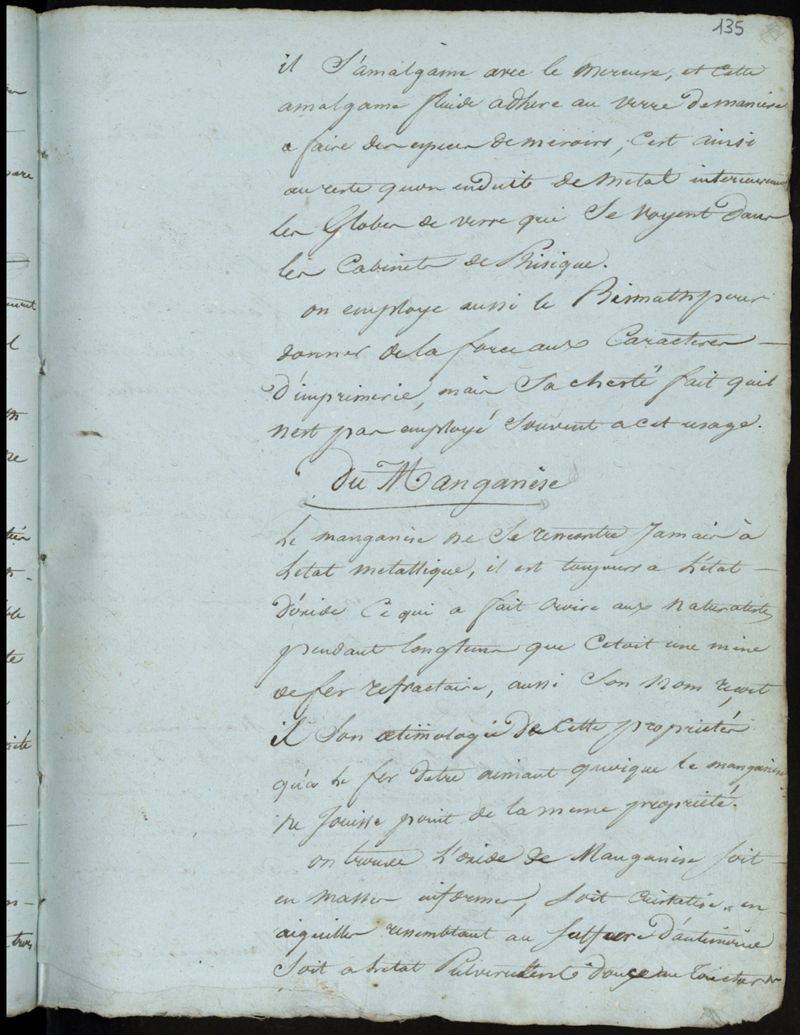 135
il S'amalgame avec le mercure, et cette
amalgame fluide adhere au verre de maniere
a faire des especes de miroirs, c'est ainsi
au reste quon enduit de metal interieurement
les Globes de verre qui se voyent dans
les Cabinets de Phisique.
on employe aussi le Bismath pour
donner de la force aux Caracteres
D'imprimerie, mais Sa cherté fait quil
n'est pas employé souvent a cet usage.
Du Manganèse
Le manganese ne se rencontre Jamais à
L'etat metallique, il est toujours a L'état
D'oxide Ce qui a fait croire aux naturalistes
pendant longtems que C'etoit une mine
de fer refractaire, aussi Son nom reçoit
il Son etimologie De Cette proprieter
qu'a Le fer detre aimant quoique le manganese
ne Jouisse point de la meme propriété.
on trouve L'oxide de Manganese Soit
en masses informes, Soit Cristalisé en
aiguilles ressemblant au Sulfure D'antimoine
Soit a L'etat Pulverulent Doux au toucher